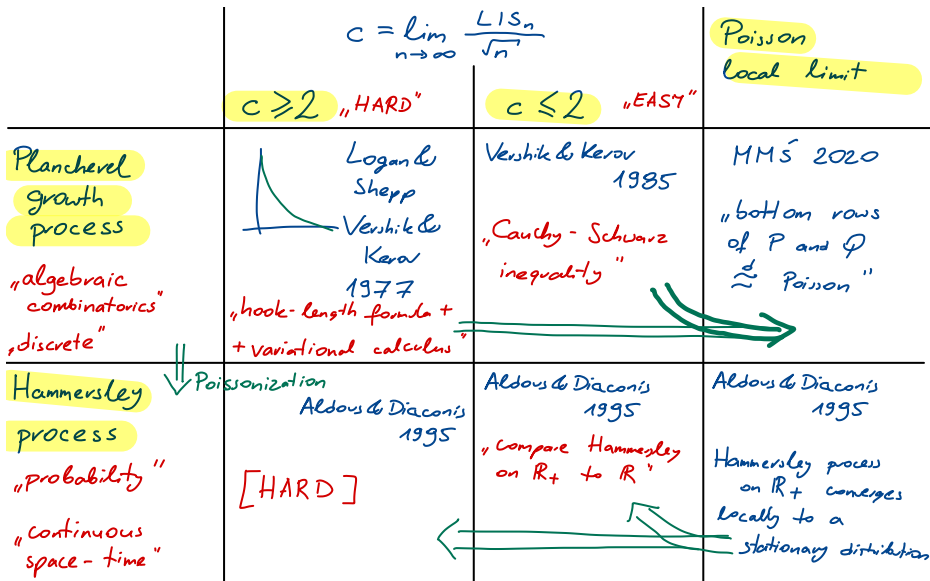 c = lim n→∞ LISₙ / √n
Poisson
local limit
c ⩾ 2 „HARD"
c ⩽ 2 „EASY"
Plancherel
growth
process
„algebraic
combinatorics"
„discrete"
Logan &
Shepp
Vershik &
Kerov
1977
„hook-length formula +
+ variational calculus"
Vershik & Kerov
1985
„Cauchy - Schwarz
inequality"
MMŚ 2020
„bottom rows
of P and Q
≈ᵈ Poisson"
Poissonization
Hammersley
process
„probability"
„continuous
space-time"
Aldous & Diaconis
1995
[HARD]
Aldous & Diaconis
1995
„compare Hammersley
on ℝ₊ to ℝ"
Aldous & Diaconis
1995
Hammersley process
on ℝ₊ converges
locally to a
stationary distribution